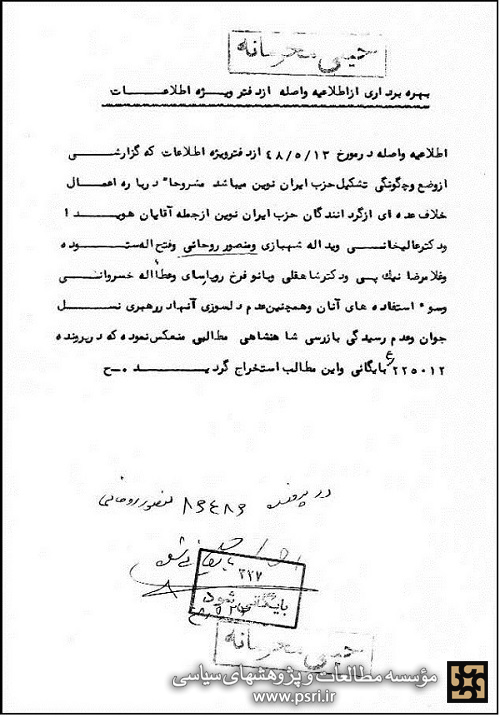 خیلی محرمانه
بهره برداری از اطلاعیه واصله از دفتر ویژه اطلاعات
اطلاعیه واصله در مورخ ۴۸/۵/۱۳ از دفتر ویژه اطلاعات که گزارشی
از وضع و چگونگی تشکیل حزب ایران نوین میباشد مشروحا" درباره اعمال
خلاف عده ای از گردانندگان حزب ایران نوین از جمله آقایان هویدا
و دکتر عالیخانی و یداله شهبازی و منصور روحانی و فتح اله ستوده
و غلامرضا نیک پی و دکتر شاهقلی و بانو فرخ رو پارسای و عطااله خسروانی
و سوء استفاده های آنان و همچنین عدم دلسوزی آنها در رهبری نسل
جوان و عدم رسیدگی بازرسی شاهنشاهی مطالبی منعکس نموده که در پرونده
۲۲۵۰۱۲ بایگانی و این مطالب استخراج گردید ۰-ح
در پرونده ۸۶۴۸۶ منصور روحانی
بایگانی شود
۲۲۷
بایگانی شود
خیلی محرمانه
مؤسسه مطالعات و پژوهشهای سیاسی
www.psri.ir